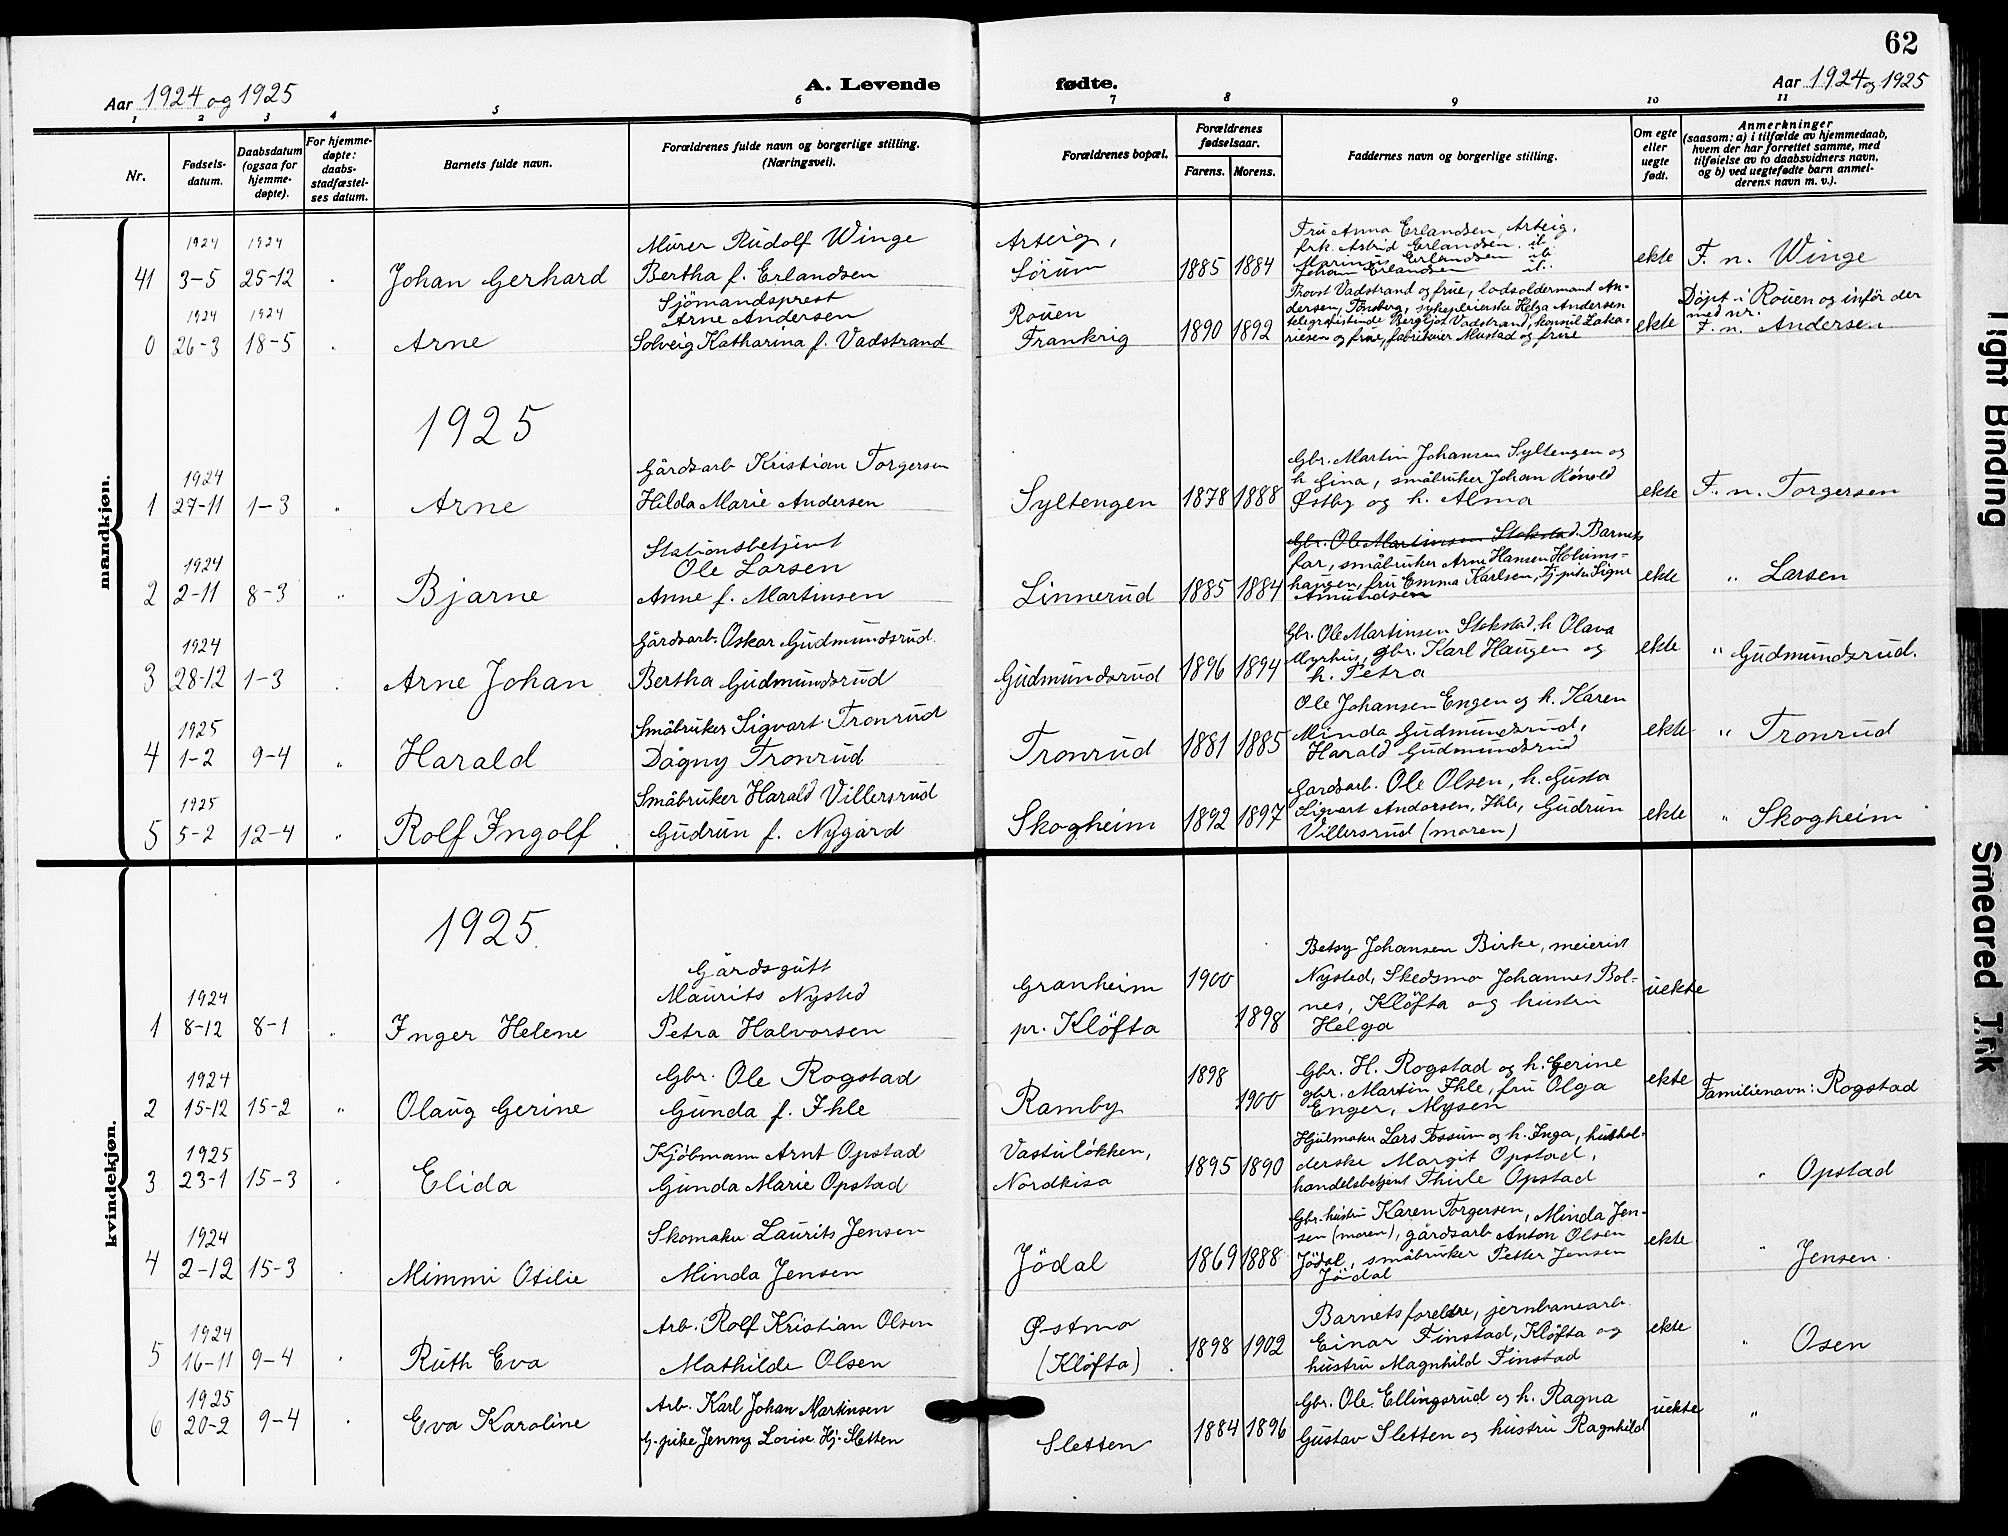 62
Aar 1924 og 1925
A. Levende fødte.
Aar 1924 og 1925
1 2 3 4 5 6 7 8 9 10 11
Nr.
Fødsels-
datum.
Daabsdatum
(ogsaa for
hjemme-
døpte).
For hjemme-
døpte:
daabs-
stadfæstel-
ses datum.
Barnets fulde navn.
Forældrenes fulde navn og borgerlige stilling.
(Næringsvei).
Forældrenes bopæl.
Forældrenes
fødselsaar.
Farens. Morens.
Faddernes navn og borgerlige stilling.
Om egte
eller
uegte
født.
Anmerkninger
(saasom: a) i tilfælde av hjemmedaab,
hvem der har forrettet samme, med
tilføielse av to daabsvidners navn,
og b) ved uegtefødte barn anmel-
derens navn m. v.).
mandkjøn.
41
1924
3-5
1924
25-12
Johan Gerhard
Murer Rudolf Winge
Bertha f. Erlandsen
Arteig,
Sørum
1885 1884
Fru Anna Erlandsen, Arteig,
frk. Astrid Erlandsen. ib.
Marinus Erlandsen ib
Johan Erlandsen ib.
ekte
F. n. Winge
0
1924
26-3
1924
18-5
Arne
Sjömandsprest
Arne Andersen
Solveig Katharina f. Vadstrand
Rouen
Frankrig
1890 1892
Provst Vadstrand og frue, lodsoldermand An-
dersen, Tönsberg, sykepleierske Helga Andersen
telegrafistinde Bergljot Vadstrand, konsul Zaka-
riesen og frue, fabrikeier Mustad og frue
ekte
Döpt i Rouen og inför der
med nr.
F. n. Andersen
1925
1
1924
27-11
1-3
Arne
Gårdsarb Kristian Torgersen
Hilda Marie Andersen
Syltengen
1878 1888
Gbr. Martin Johansen Syltengen og
h Gina, småbruker Johan Rönold
Østby og h. Alma
ekte
F. n. Torgersen
2
1924
2-11
8-3
"
Bjarne
Stationsbetjent
Ole Larsen
Anne f. Martinsen
Linnerud
1885 1884
Gbr. Ole Martinsen Stokstad. Barnets
far, småbruker Arne Hansen Holums-
haugen, fru Emma Karlsen, Tj. pike Signe
Amundsen
ekte
" Larsen
3
1924
28-12
1-3
Arne Johan
Gårdsarb. Oskar Gudmundsrud.
Bertha Gudmundsrud
Gudmundsrud
1896 1894
Gbr. Ole Martinsen Stokstad, h Olava
Myrhus, gbr. Karl Haugen og
h. Petra
ekte
" Gudmundsrud.
4
1925
1-2
9-4
"
Harald
Småbruker Sigvart Tronrud
Dagny Tronrud
Tronrud
1881 1885
Ole Johansen Engen og h. Karen
Minda Gudmundsrud,
Harald Gudmundsrud
ekte
" Tronrud
5
1925
5-2
12-4
"
Rolf Ingolf
Småbruker Harald Villersrud
Gudrun f. Nygård
Skogheim
1892 1897
Gardsarb. Ole Olsen, h. Gusta
Sigvart Andersen, Ihle, Gudrun
Villersrud (moren)
ekte
" Skogheim
kvindekjøn.
1925.
1
1924
8-12
8-1
Inger Helene
Gårdsgutt
Maurits Nysted
Petra Halvorsen
Granheim
pr. Klöfta
1900
1898
Betsy Johansen Birke, meierist
Nysted, Skedsmo Johannes Bol-
nes, Klöfta og hustru
Helga
uekte
2
1924
15-12
15-2
"
Olaug Gerine
Gbr. Ole Rogstad
Gunda f. Ihle
Ramby
1898
1900
Gbr. H. Rogstad og h. Gerine
gbr. Martin Ihle, fru Olga
Enger, Mysen
ekte
Familienavn: Rogstad
3
1925
23-1
15-3
Elida
Kjöbmann Arnt Opstad
Gunda Marie Opstad
Vastulökken,
Nordkisa
1895 1890
Hjulmaker Lars Fossum og h. Inga, hushol-
derske Margit Opstad,
handelsbetjent Thirle Opstad
" Opstad
4
1924
2-12
15-3
Mimmi Otilie
Skomaker Laurits Jensen
Minda Jensen
Jödal
1869 1888
Gbr. hustru Karen Torgersen, Minda Jen-
sen (moren), gårdsarb Anton Olsen
Jödal, småbruker Petter Jensen
Jödal
ekte
" Jensen.
5
1924
16-11
9-4
Ruth Eva
Arb. Rolf Kristian Olsen
Mathilde Olsen
Østmo
(Kløfta)
1898 1902
Barnets foreldre, jernbanearb.
Einar Finstad, Kløfta og
hustru Magnhild Finstad
ekte
" Osen
6
1925
20-2
9-4
Eva Karoline
Arb. Karl Johan Martinsen
G. pike Jenny Lovise Hj. Sletten
Sletten
1884 1896
Gbr. Ole Ellingsrud og h. Ragna
Gustav Sletten og hustru Ragnhild
uekte
"
Tight Binding
Smeared Ink